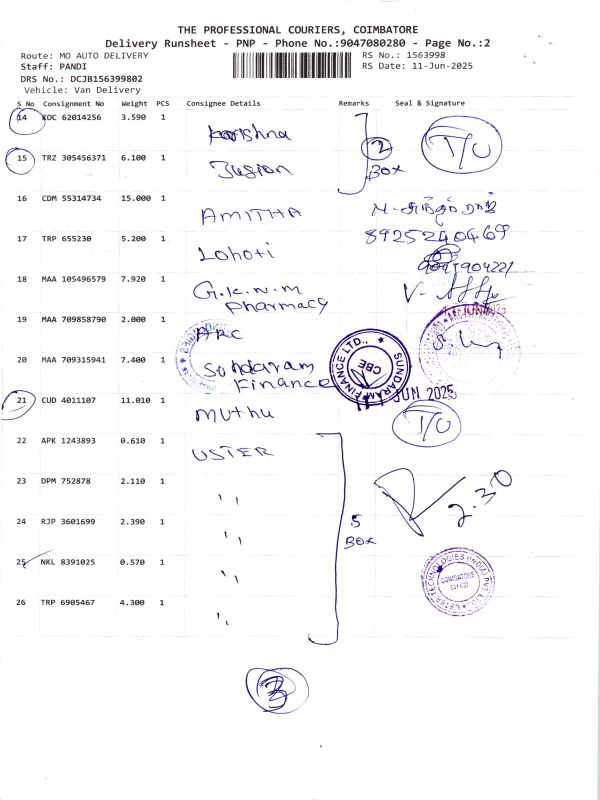 THE PROFESSIONAL COURIERS, COIMBATORE
Delivery Runsheet - PNP - Phone No.:9047080280 - Page No.:2
Route: MO AUTO DELIVERY
RS No.: 1563998
Staff: PANDI
RS Date: 11-Jun-2025
DRS No.: DCJB156399802
Vehicle: Van Delivery
S No Consignment No Weight PCS Consignee Details Remarks Seal & Signature
14 KOC 62014256 3.590 1 Karishna
15 TRZ 305456371 6.100 1 Fusion 2 BOX T/O
16 CDM 55314734 15.000 1 AMITHA
17 TRP 655230 5.200 1 Lohoti 8925240469
18 MAA 105496579 7.920 1 G.K.N.M
Pharmacy
19 MAA 709858790 2.000 1 ARC
20 MAA 709315941 7.400 1 Sundaram
Finance SUNDARAM FINANCE LTD., CBE
21 CUD 4011107 11.010 1 Muthu JUN 2025 T/O
22 APK 1243893 0.610 1 USTER
23 DPM 752878 2.110 1 " 2.30
24 RJP 3601699 2.390 1 " 5 BOX
25 NKL 8391025 0.570 1 " USTER TECHNOLOGIES (INDIA) PVT LTD COIMBATORE
26 TRP 6905467 4.300 1 "
3